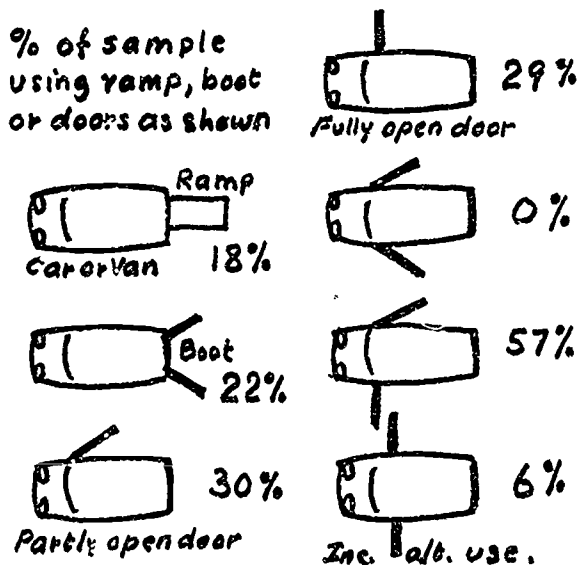 % of sample
using ramp, boot
or doors as shown
Ramp
Car or Van 18%
Boot
22%
30%
Partly open door
29%
Fully open door
0%
57%
6%
Inc. alt. use.